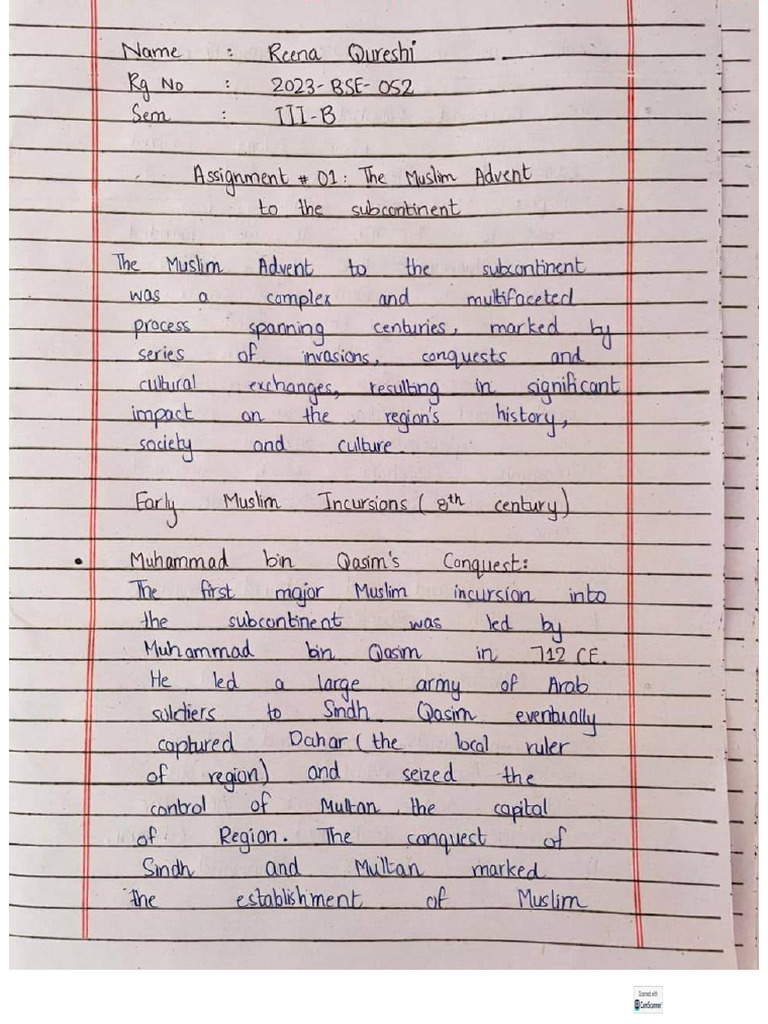 Name : Reena Qureshi
Rg No : 2023-BSE-052
Sem : III-B
Assignment # 01: The Muslim Advent
to the subcontinent
The Muslim Advent to the subcontinent
was a complex and multifaceted
process spanning centuries, marked by
series of invasions, conquests and
cultural exchanges, resulting in significant
impact on the region's history,
society and culture.
Early Muslim Incursions ( 8th century)
• Muhammad bin Qasim's Conquest:
The first major Muslim incursion into
the subcontinent was led by
Muhammad bin Qasim in 712 CE.
He led a large army of Arab
suldiers to Sindh. Qasim eventually
captured Dahar ( the local ruler
of region) and seized the
control of Multan, the capital
of Region. The conquest of
Sindh and Multan marked
the establishment of Muslim
Scanned with
CamScanner